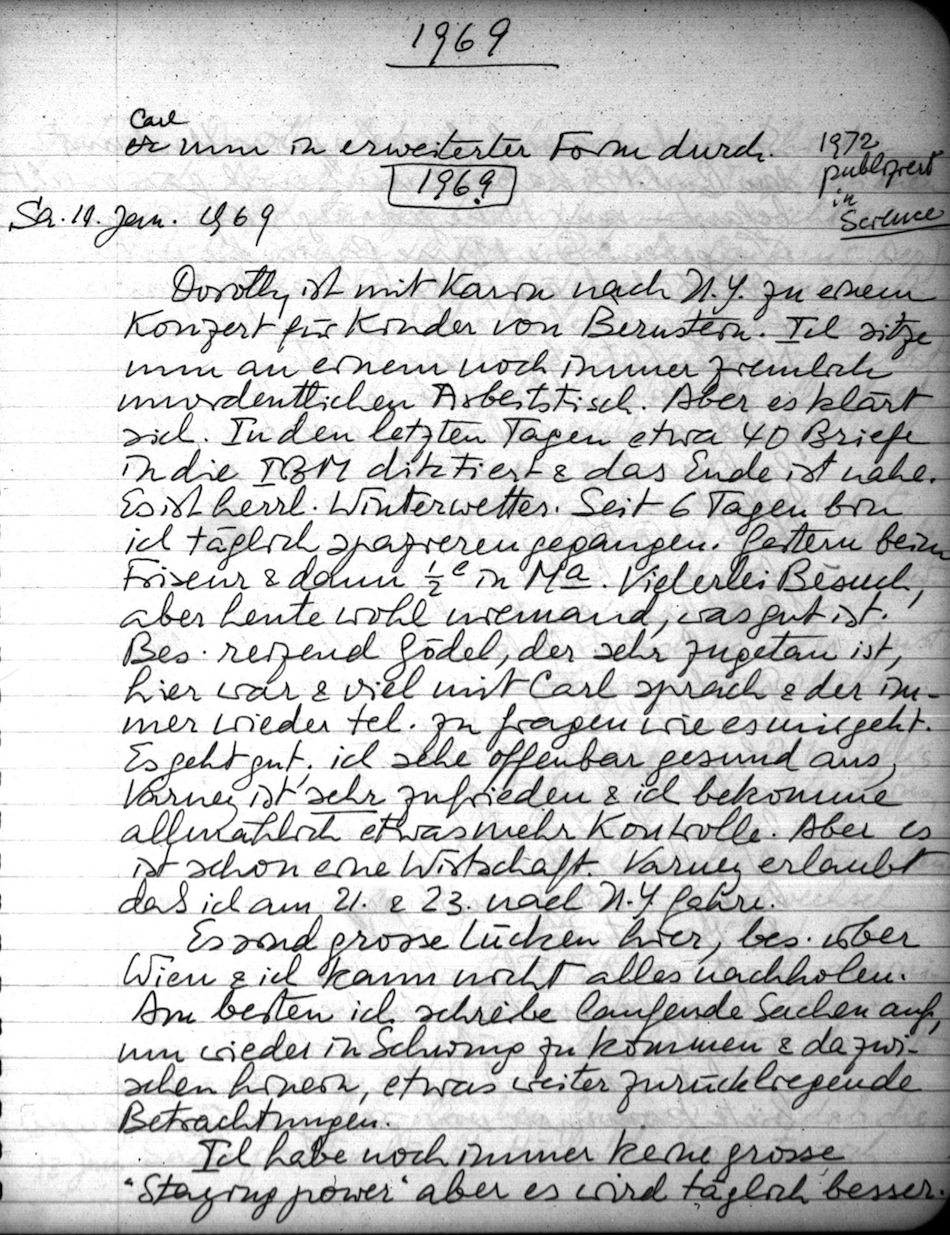 1969
Carl
er nun in erweiterter Form durch.
1972
publiziert
in
Science
1969
Sa. 11. Jan. 1969
Dorothy ist mit Karin nach N.Y. zu einem
Konzert für Kinder von Bernstein. Ich sitze
nun an einem noch immer ziemlich
unordentlichen Arbeitstisch. Aber es klärt
sich. In den letzten Tagen etwa 40 Briefe
in die IBM diktiert & das Ende ist nahe.
Es ist herrl. Winterwetter. Seit 6 Tagen bin
ich täglich spazierengegangen. Gestern beim
Friseur & dann ½ e in Ma. Vielerlei Besuch,
aber heute wohl niemand, was gut ist.
Bes. reizend Gödel, der sehr zugetan ist,
hier war & viel mit Carl sprach & der im-
mer wieder tel. zu fragen wie es mir geht.
Es geht gut, ich sehe offenbar gesund aus,
Varney ist sehr zufrieden & ich bekomme
allmählich etwas mehr Kontrolle. Aber es
ist schon eine Wirtschaft. Varney erlaubt
daß ich am 21. & 23. nach N.Y. fahre.
Es sind grosse Lücken hier, bes. über
Wien & ich kann nicht alles nachholen.
Am besten ich schreibe laufende Sachen auf,
um wieder in Schwung zu kommen & dazwi-
schen hinein, etwas weiter zurückliegende
Betrachtungen.
Ich habe noch immer keine grosse
"Staying power" aber es wird täglich besser.